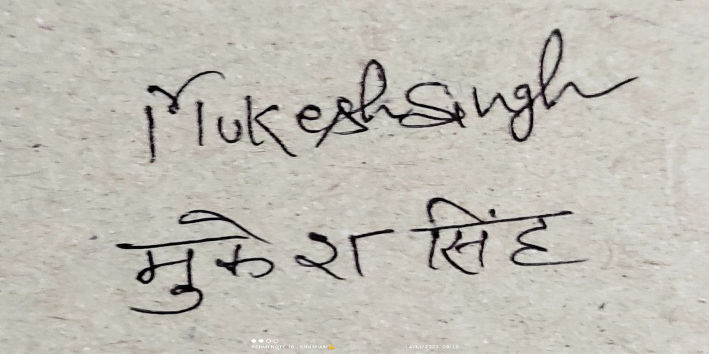 Mukesh Singh
मुकेश सिंह